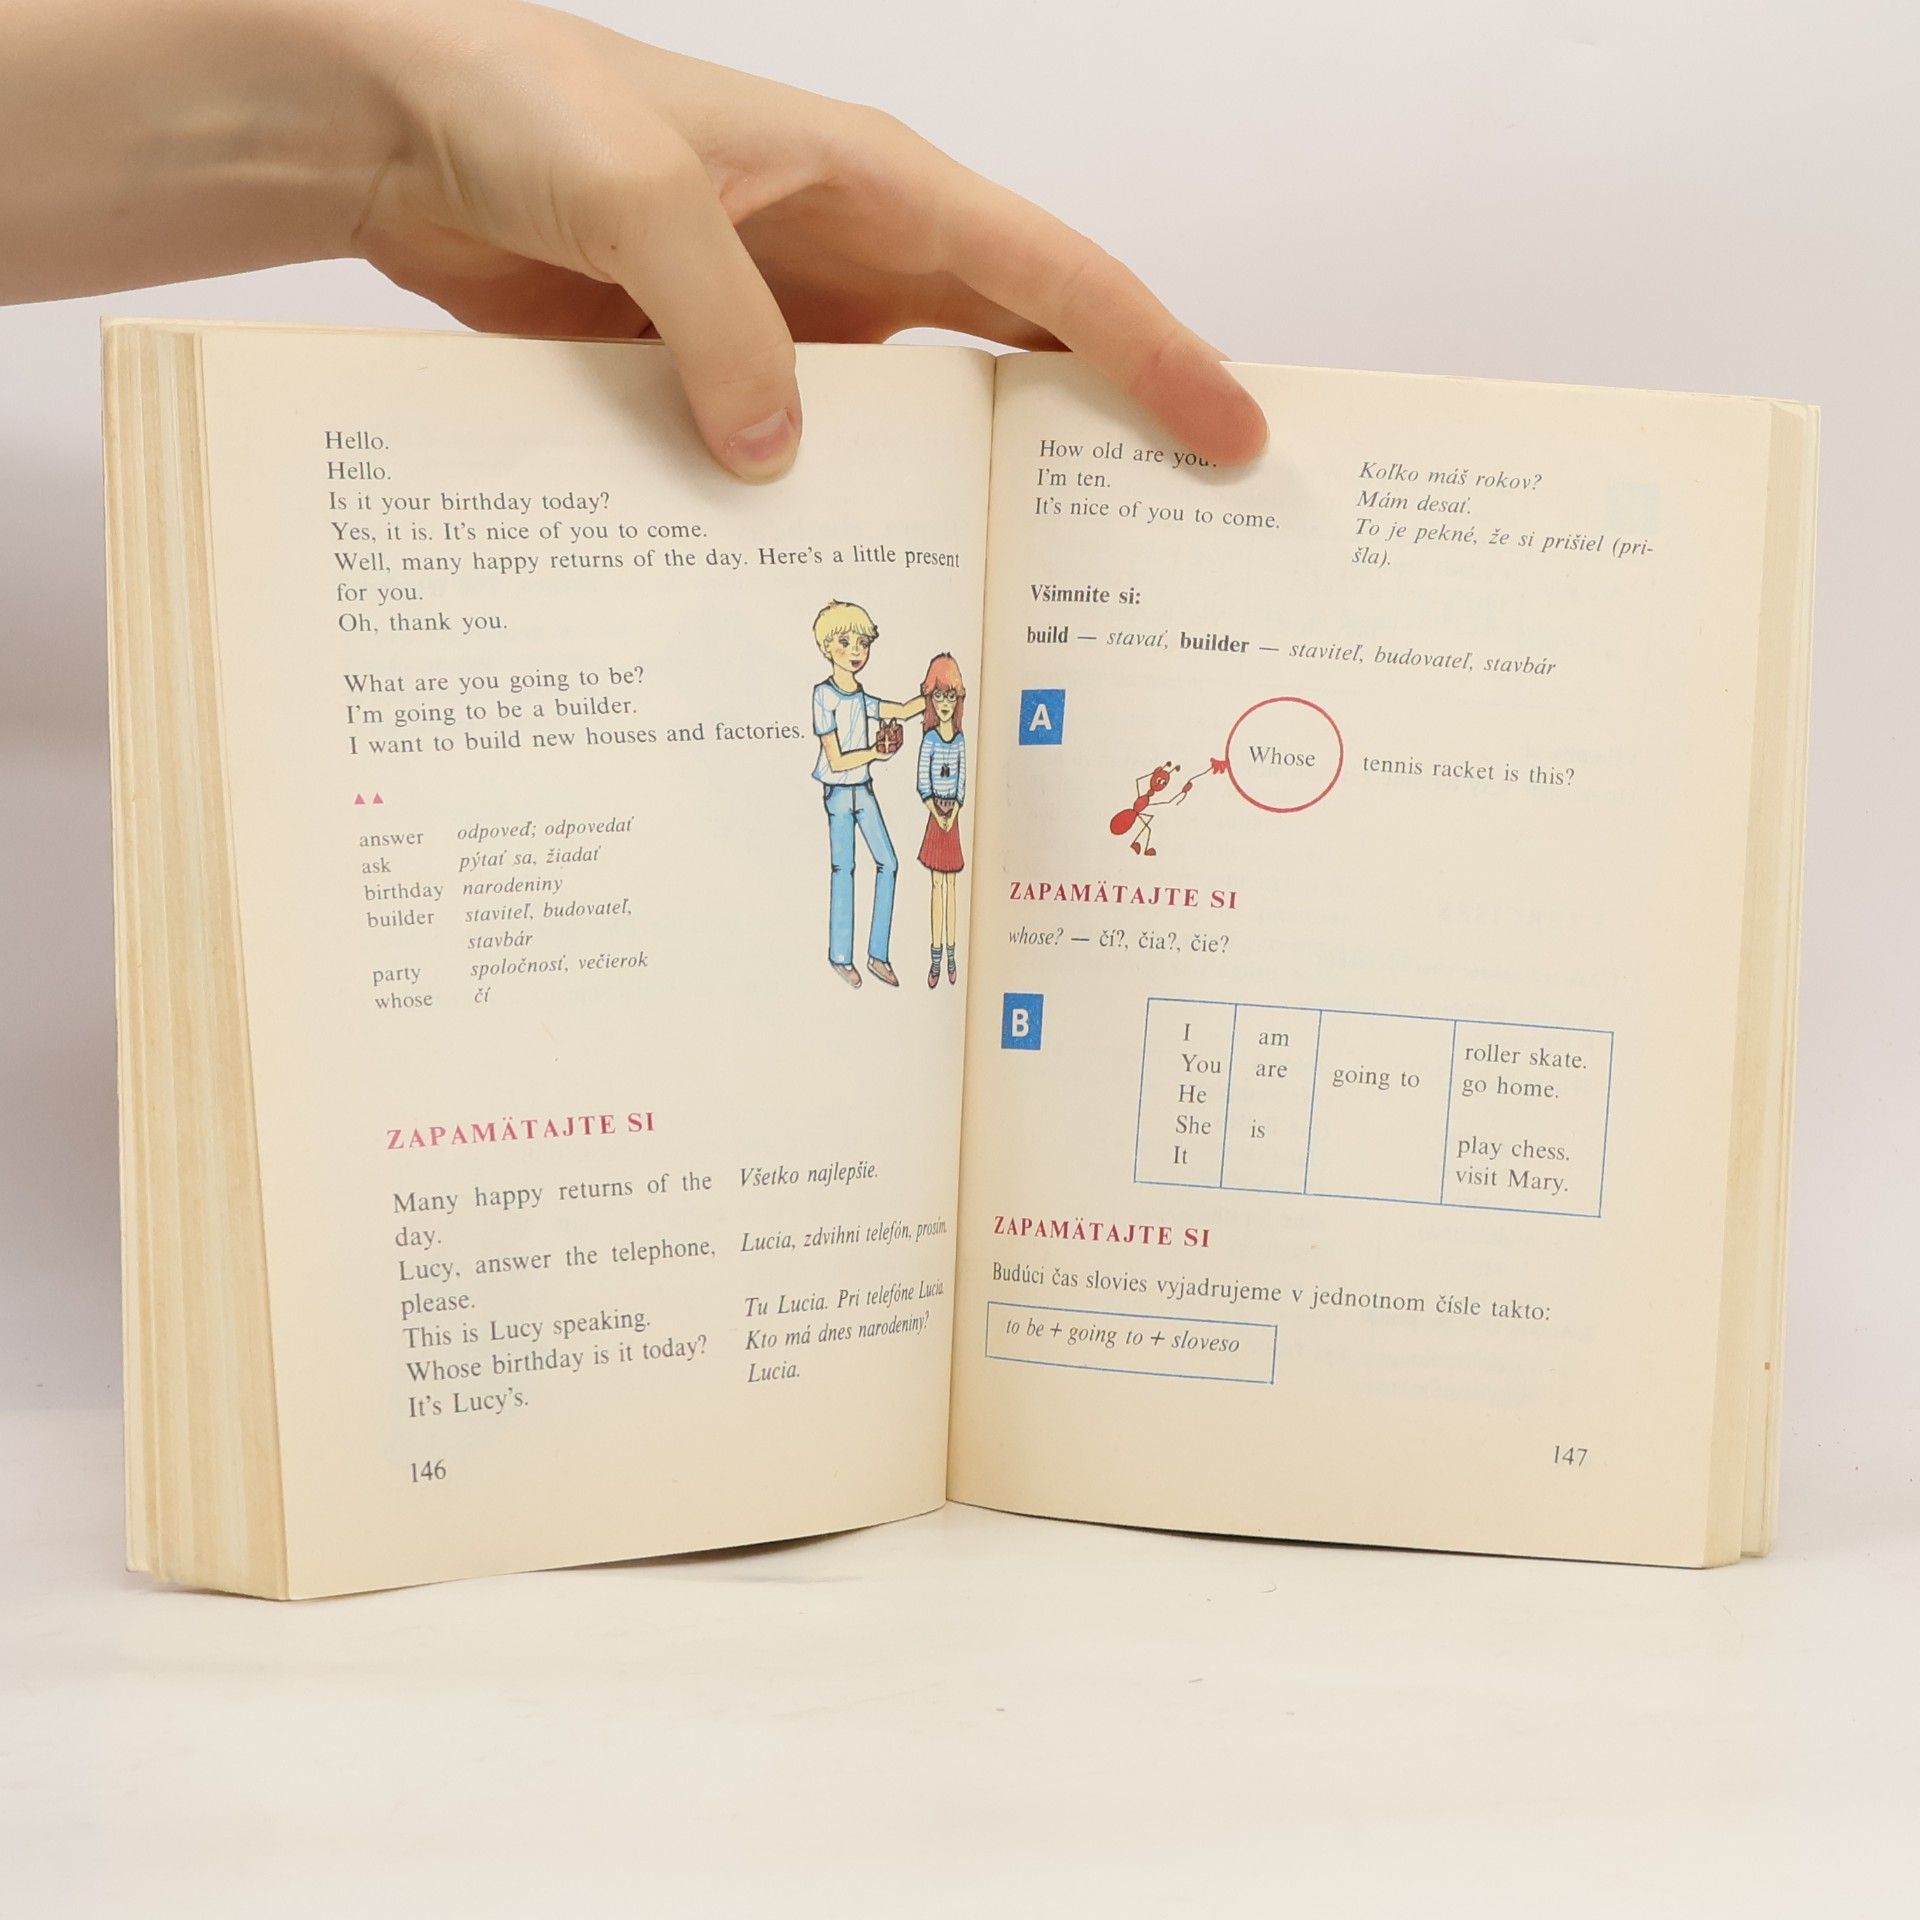 Hello.
Hello.
Is it your birthday today?
Yes, it is. It's nice of you to come.
Well, many happy returns of the day. Here's a little present
for you.
Oh, thank you.
What are you going to be?
I'm going to be a builder.
I want to build new houses and factories.
answer odpoveď; odpovedať
ask pýtať sa, žiadať
birthday narodeniny
builder staviteľ, budovateľ,
stavbár
party spoločnosť, večierok
whose čí
ZAPAMÄTAJTE SI
Many happy returns of the Všetko najlepšie.
day.
Lucy, answer the telephone, Lucia, zdvihni telefón, prosím.
please.
This is Lucy speaking. Tu Lucia. Pri telefóne Lucia.
Whose birthday is it today? Kto má dnes narodeniny?
It's Lucy's. Lucia.
146
How old are you?
Koľko máš rokov?
I'm ten.
Mám desať.
It's nice of you to come.
To je pekné, že si prišiel (pri-
šla).
Všimnite si:
build — stavať, builder — staviteľ, budovateľ, stavbár
A
Whose tennis racket is this?
ZAPAMÄTAJTE SI
whose? — čí?, čia?, čie?
B
I am roller skate.
You are going to go home.
He
She is play chess.
It visit Mary.
ZAPAMÄTAJTE SI
Budúci čas slovies vyjadrujeme v jednotnom čísle takto:
to be + going to + sloveso
147